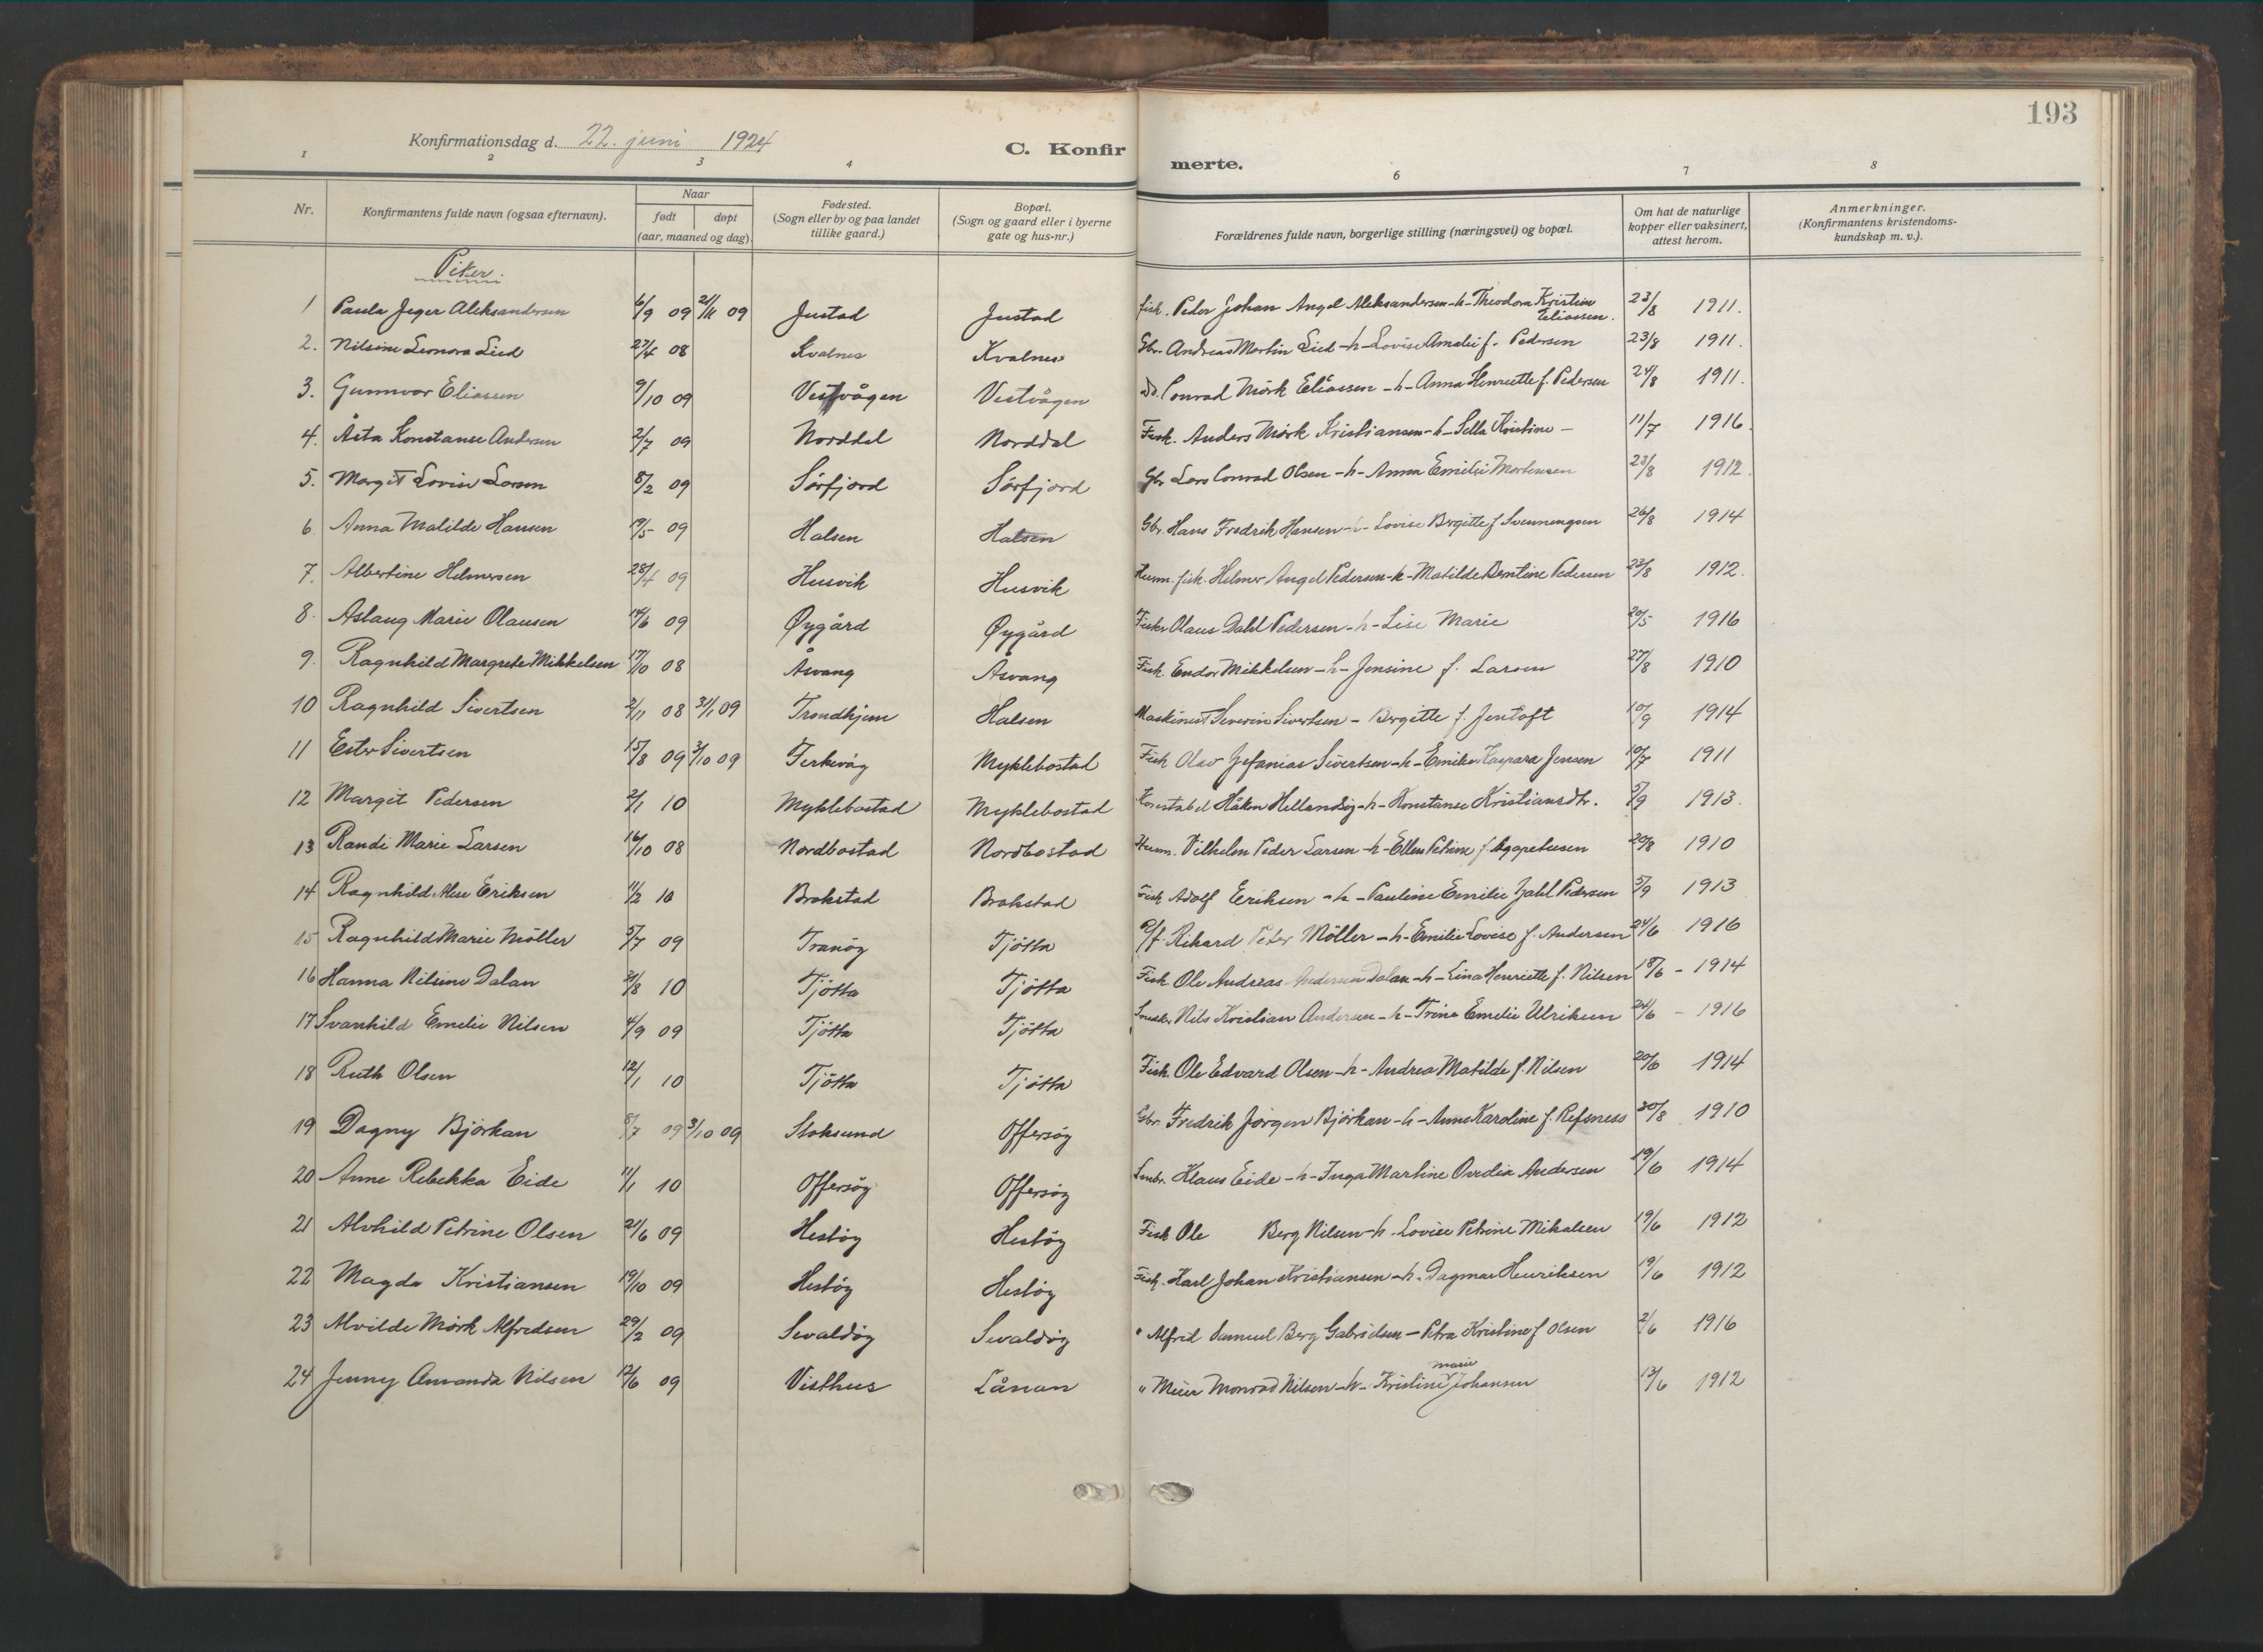 193
Konfirmationsdag d. 22. juni 1924
C. Konfirmerte.
1 2 3 4 6 7 8
Nr.
Konfirmantens fulde navn (ogsaa efternavn).
Naar
født døpt
(aar, maaned og dag).
Fødested.
(Sogn eller by og paa landet
tillike gaard.)
Bopæl.
(Sogn og gaard eller i byerne
gate og hus-nr.)
Forældrenes fulde navn, borgerlige stilling (næringsvei) og bopæl.
Om hat de naturlige
kopper eller vaksinert,
attest herom.
Anmerkninger.
(Konfirmantens kristendoms-
kundskap m. v.).
Piker.
1 Paula Jeger Aleksandersen 6/9 09 21/11 09 Justad Justad fisk. Peder Johan Angel Aleksandersen -h- Theodora Kristine Eliassen. 23/8 1911.
2. Nilsine Leonora Lied 27/4 08 Kvalnes Kvalnes Gbr. Andreas Martin Lied -h- Lovise Amalie f. Pedersen 23/8 1911.
3. Gunnvor Eliassen 9/10 09 Vestvågen Vestvågen do. Conrad Mörk Eliassen -h- Anna Henriette f. Pedersen 24/8 1911.
4. Åsta Konstanse Andersen 2/7 09 Norddal Norddal Fisk. Anders Mörk Kristiansen -h- Sella Kristine - 11/7 1916.
5. Margit Lovise Larsen 8/2 09 Sörfjord Sörfjord Gbr Lars Conrad Olsen -h- Anna Emilie Mortensen 23/8 1912.
6 Anna Matilde Hansen 19/5 09 Halsen Halsen Gbr. Hans Fredrik Hansen -h- Lovise Bergitte f Svenningsen 26/8 1914
7. Albertine Helmersen 28/4 09 Husvik Husvik Husm. fisk. Helmer Angel Pedersen -h- Matilde Bentine Pedersen 23/8 1912.
8. Aslaug Marie Olausen 14/6 09 Øygård Øygård Fisker Olaus Dahl Pedersen -h- Lise Marie 20/5 1916
9. Ragnhild Margrete Mikkelsen 17/10 08 Åsvang Åsvang Fisk. Endor Mikkelsen -h- Jensine f. Larsen 27/8 1910
10 Ragnhild Sivertsen 2/11 08 31/1 09 Trondhjem Halsen Maskinist Severin Sivertsen - Bergitte f. Jentoft 10/9 1914
11 Ester Sivertsen 15/8 09 3/10 09 Terkvåg Myklebostad Fisk Olav Zefanias Sivertsen -h- Emilie Kaspara Jensen 10/7 1911
12 Margit Pedersen 2/1 10 Myklebostad Myklebostad Konstabel Håkon Hellandsig -h- Konstanse Kristiansdtr. 5/9 1913.
13 Randi Marie Larsen 16/10 08 Nordbostad Nordbostad Husm. Vilhelm Peder Larsen -h- Ellen Petrine f. Agapetusen 20/8 1910
14 Ragnhild Alese Eriksen 11/2 10 Brokstad Brokstad Fisk Adolf Eriksen -h- Pauline Emilie Zahl Pedersen 5/9 1913
15 Ragnhild Marie Möller 5/7 09 Tranöy Tjötta P/f. Rikard Peter Möller -h- Emilie Lovise f. Andersen 24/6 1916
16 Hanna Nilsine Dalan 31/8 10 Tjötta Tjötta Fisk Ole Andreas Andersen Dalan -h- Lina Henriette f. Nilsen 18/6 - 1914
17 Svanhild Emelie Nilsen 4/9 09 Tjötta Tjötta Nils Kristian Andersen -h- Trine Emelie Ulriksen 24/6 - 1916
18 Ruth Olsen 12/1 10 Tjötta Tjötta Fisk. Ole Edvard Olsen -h- Andrea Matilde f. Nilsen 20/6 1914
19 Dagny Björkan 8/7 09 3/10 09 Stoksund Offersöy Gbr. Fredrik Jörgen Björkan -h- Anne Karoline f. Refsness 30/8 1910
20 Anne Rebekka Eide 11/1 10 Offersöy Offersöy Smbr. Klaus Eide -h- Inga Martine Ovedia Andersen 19/6 1914
21 Alvhild Petrine Olsen 21/6 09 Hestöy Hestöy Fisk Ole Berg Nilsen -h- Lovise Petrine Mikalsen 19/6 1912
22 Magda Kristiansen 19/10 09 Hestöy Hestöy Fisk. Karl Johan Kristiansen -h- Dagmar Henriksen 19/6 1912
23 Alvilde Mörk Alfredsen 29/2 09 Sevaldöy Sevaldöy " Alfred Samuel Berg Gabrielsen - Petra Kristine f Olsen 2/6 1916
24 Jenny Amanda Nilsen 12/6 09 Visthus Lånan " Meier Monrad Nilsen -h- Kristine Marie Johansen 13/6 1912